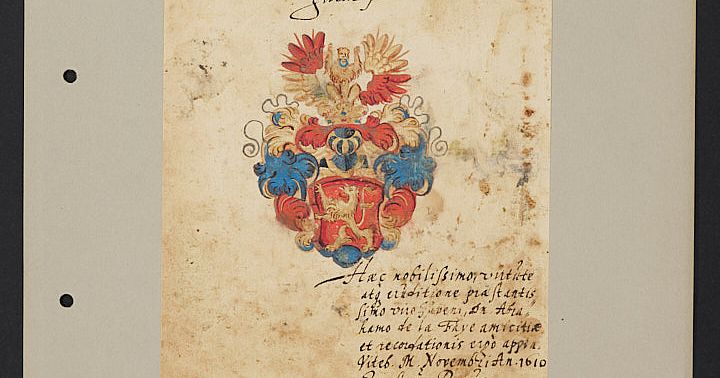 Hæc nobilissimo, virtute
atq; eruditione præstantis
simo viro Iuveni, Dn. Abra
hamo de la Faye amicitiæ
et recordationis ergò appo.
Viteb. M. Novembri An. 1610